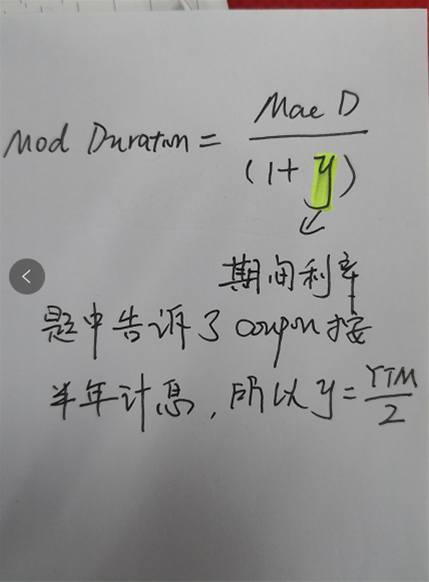 Mod Duration = Mac D
(1+ y)
期间利率
题中告诉了 coupon 按
半年计息，所以 y = YTM
2